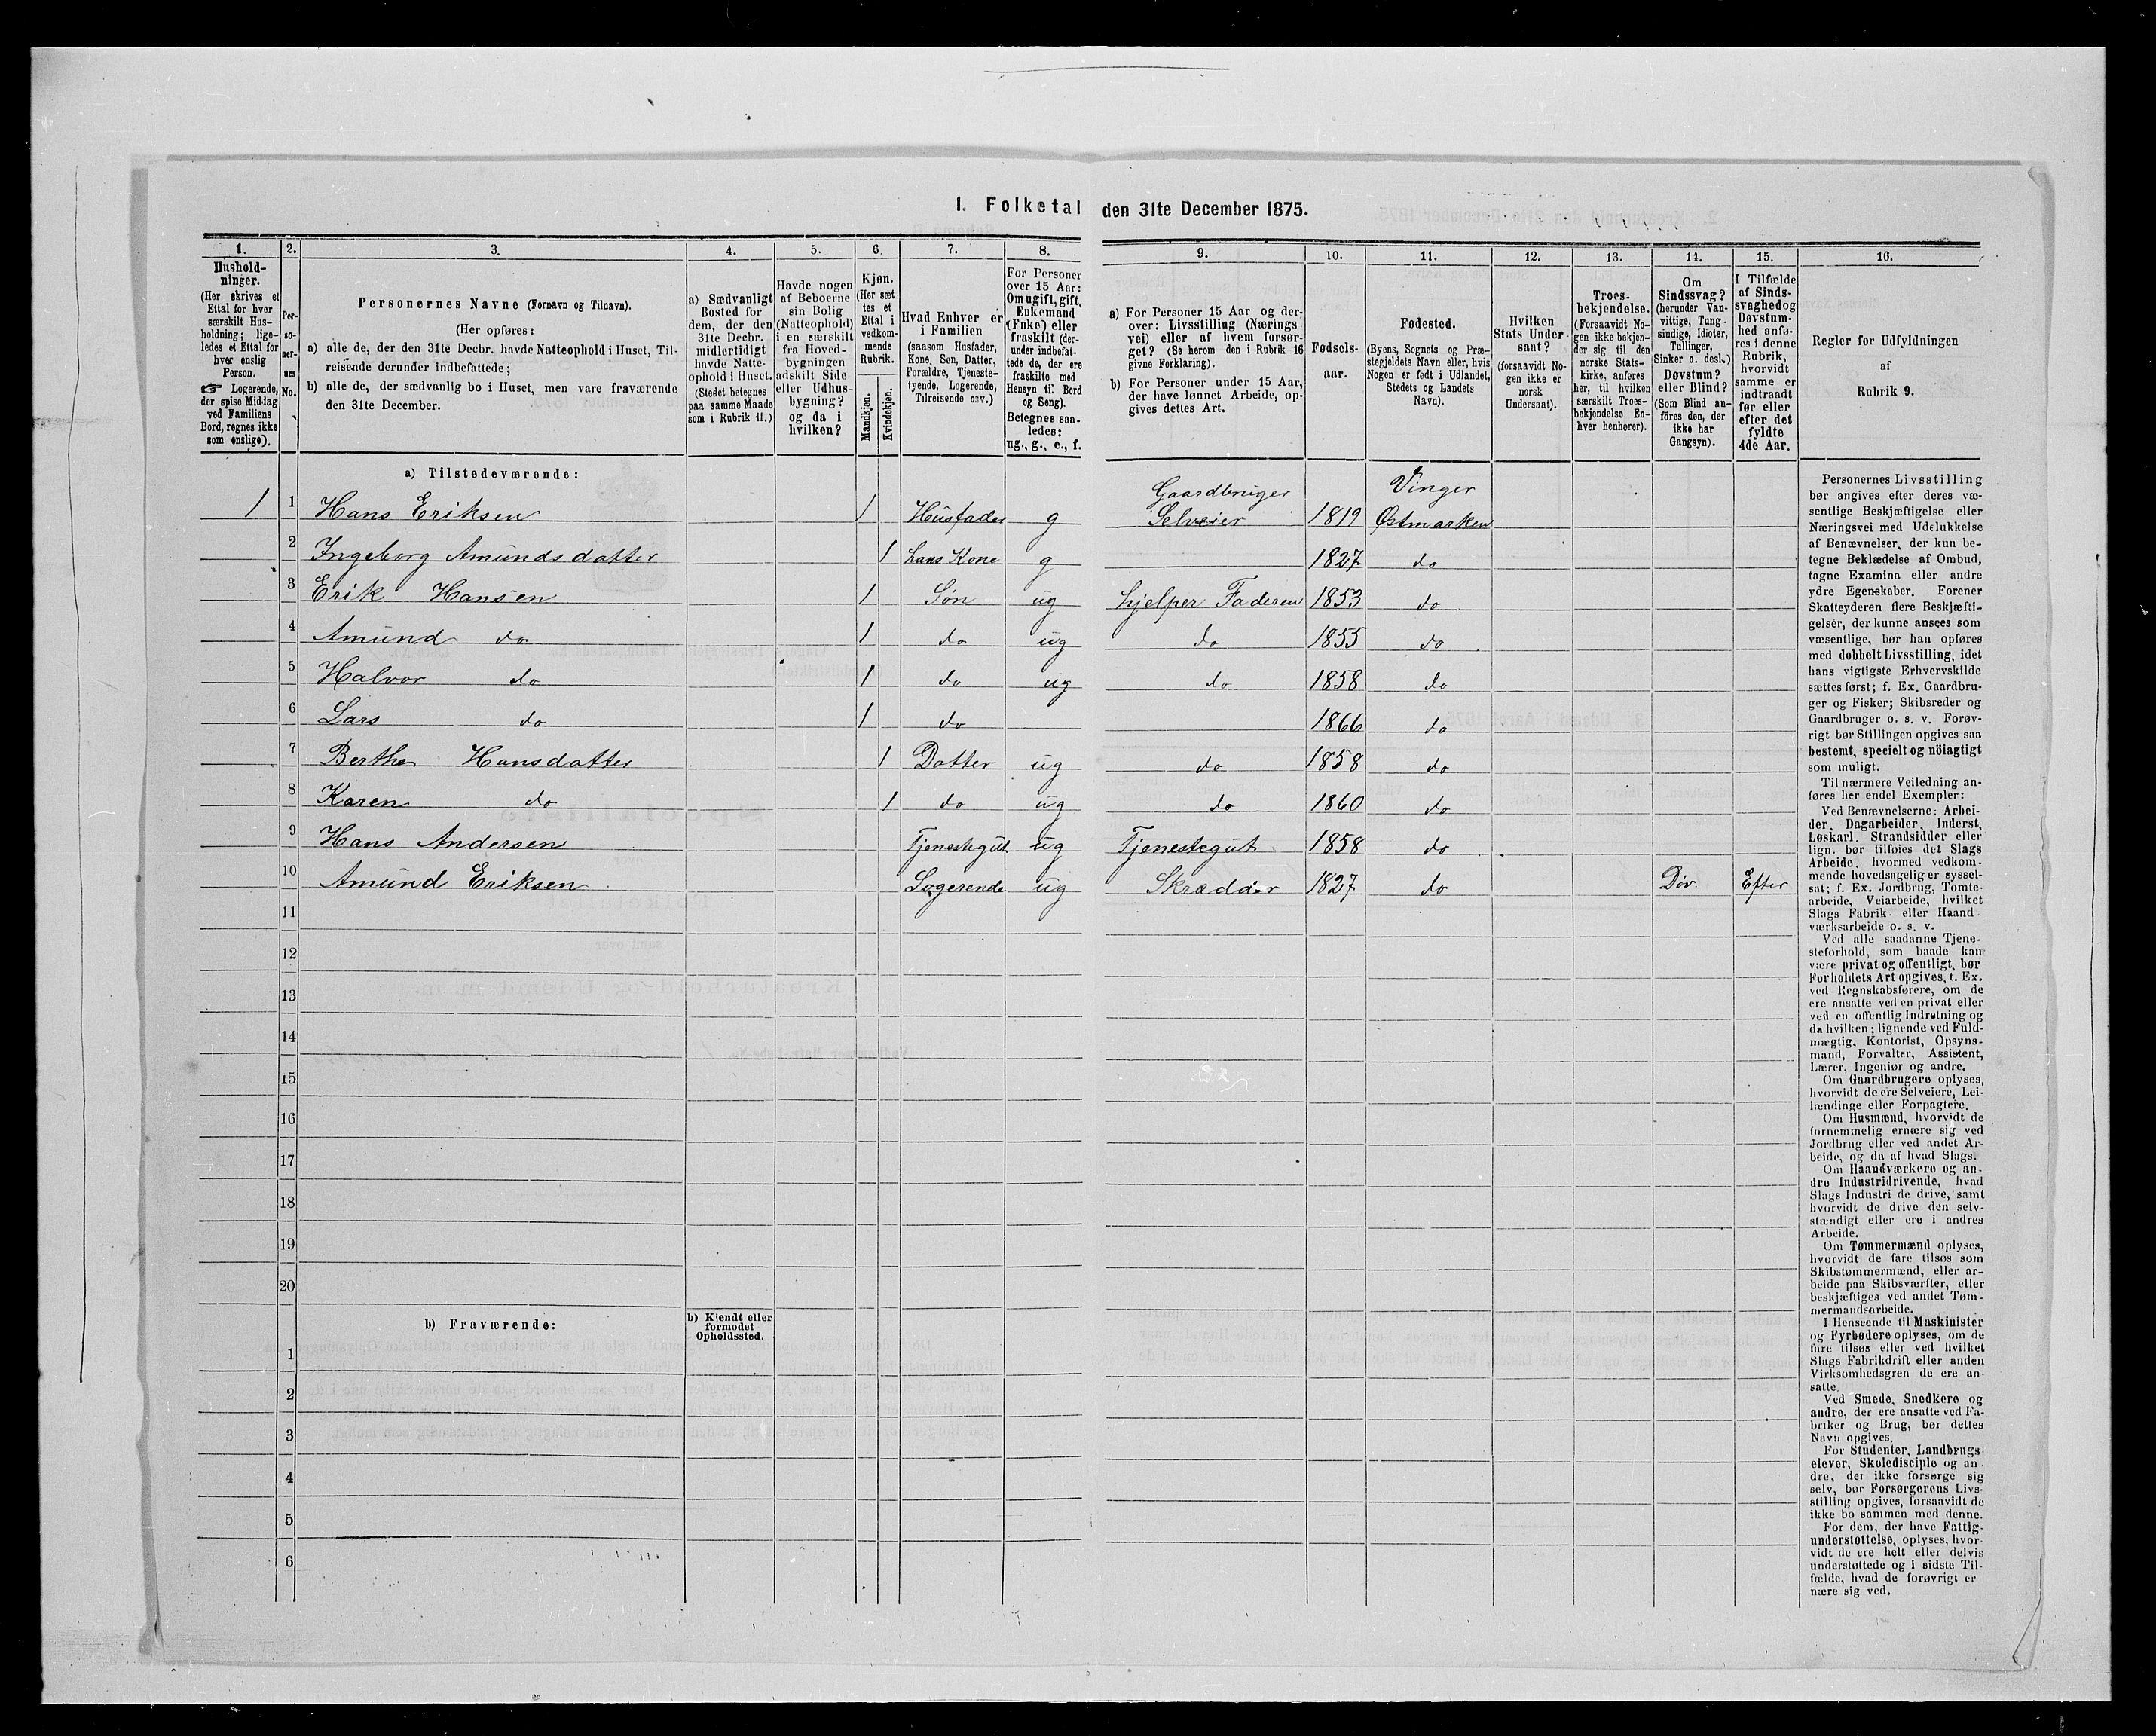 1. Folketal den 31te December 1875.
1. 2. 3. 4. 5. 6. 7. 8. 9. 10. 11. 12. 13. 11. 15. 16.
Hushold-
ninger.
(Her skrives et
Ettal for hver
særskilt Hus-
holdning; lige-
ledes et Ettal for
hver enslig
Person.
☞ Logerende,
der spise Middag
ved Familiens
Bord, regnes ikke
som enslige).
Per-
so-
ner-
nes
No.
Personernes Navne (Fornavn og Tilnavn).
(Her opføres:
a) alle de, der den 31te Decbr. havde Natteophold i Huset, Til-
reisende derunder indbefattede;
b) alle de, der sædvanlig bo i Huset, men vare fraværende
den 31te December.
a) Sædvanligt
Bosted for
dem, der den
31te Decbr.
midlertidigt
havde Natte-
ophold i Huset.
(Stedet betegnes
paa samme Maade
som i Rubrik 11.)
Havde nogen
af Beboerne
sin Bolig
(Natteophold)
i en særskilt
fra Hoved-
bygningen
adskilt Side
eller Udhus-
bygning?
og da i
hvilken?
Kjøn.
(Her sæt
tes et
Ettal i
vedkom-
mende
Rubrik.
Mandkjøn.
Kvindekjøn.
Hvad Enhver er
i Familien
(saasom Husfader,
Kone, Søn, Datter,
Forældre, Tjeneste-
tyende, Logerende,
Tilreisende osv.)
For Personer
over 15 Aar:
Om ugift, gift,
Enkemand
(Enke) eller
fraskilt (der-
under indbefat-
tede de, der ere
fraskilte med
Hensyn til Bord
og Seng).
Betegnes saa-
ledes:
ug., g., e., f.
a) For Personer 15 Aar og der-
over: Livsstilling (Nærings
vei) eller af hvem forsør-
get? (Se herom den i Rubrik 16
givne Forklaring).
b) For Personer under 15 Aar,
der have lønnet Arbeide, op-
gives dettes Art.
Fødsels-
aar.
Fødested.
(Byens, Sognets og Præ-
stegjeldets Navn eller, hvis
Nogen er født i Udlandet,
Stedets og Landets
Navn).
Hvilken
Stats Under-
saat?
(forsaavidt No-
gen ikke er
norsk
Undersaat).
Troes-
bekjendelse.
(Forsaavidt No-
gen ikke bekjen-
der sig til den
norske Stats-
kirke, anføres
her, til hvilken
særskilt Troes-
bekjendelse En-
hver henhører).
Om
Sindssvag?
(herunder Van-
vittige, Tung-
sindige, Idioter,
Tullinger,
Sinker o. desl.)
Døvstum?
eller Blind?
(Som Blind an-
föres den, der
ikke har
Gangsyn).
I Tilfælde
af Sinds-
svaghed og
Døvstum-
hed anfø-
res i denne
Rubrik,
hvorvidt
samme er
indtraadt
før eller
efter det
fyldte
4de Aar.
Regler for Udfyldningen
af
Rubrik 9.
a) Tilstedeværende:
Gaardbruger Vinger
1 1 Hans Eriksen 1 Husfader g Selveier 1819 Østmarken
2 Ingeborg Amundsdatter 1 hans Kone g 1827 do
3 Erik Hansen 1 Søn ug hjelper Faderen 1853 do
4 Amund do 1 do ug do 1855 do
5 Halvor do 1 do ug do 1858 do
6 Lars do 1 do 1866 do
7 Berthe Hansdatter 1 Datter ug do 1858 do
8 Karen do 1 do ug do 1860 do
9 Hans Andersen Tjenestegut ug Tjenestegut 1858 do
10 Amund Eriksen Logerende ug Skrædder 1827 do Døv. Efter
11
12
13
14
15
16
17
18
19
20
b) Fraværende:
b) Kjendt eller
formodet
Opholdssted.
1
2
3
4
5
6
Personernes Livsstilling
bør angives efter deres væ-
sentlige Beskjæftigelse eller
Næringsvei med Udelukkelse
af Benævnelser, der kun be-
tegne Beklædelse af Ombud,
tagne Examina eller andre
ydre Egenskaber. Forener
Skatteyderen flere Beskjæfti-
gelser, der kunne ansees som
væsentlige, bør han opføres
med dobbelt Livsstilling, idet
hans vigtigste Erhvervskilde
sættes først; f. Ex. Gaardbru-
ger og Fisker; Skibsreder og
Gaardbruger o. s. v. Forøv-
rigt bør Stillingen opgives saa
bestemt, specielt og nöiagtigt
som muligt.
Til nærmere Veiledning an-
føres her endel Exempler:
Ved Benævnelserne: Arbei-
der, Dagarbeider, Inderst,
Løskarl, Strandsidder eller
lign. bør tilføies det Slags
Arbeide, hvormed vedkom-
mende hovedsagelig er syssel-
sat; f. Ex. Jordbrug, Tomte-
arbeide, Veiarbeide, hvilket
Slags Fabrik- eller Haand-
værksarbeide o. s. v.
Ved alle saadanne Tjene-
steforhold, som baade kan
være privat og offentligt, bør
Forholdets Art opgives, t. Ex.
ved Regnskabsførere, om de
ere ansatte ved en privat eller
ved en offentlig Indretning og
da hvilken; lignende ved Fuld-
mægtig, Kontorist, Opsyns-
mand, Forvalter, Assistent,
Lærer, Ingeniør og andre.
Om Gaardbrugere oplyses,
hvorvidt de ere Selveiere, Lei-
lændinge eller Forpagtere.
Om Husmænd, hvorvidt de
fornemmelig ernære sig ved
Jordbrug eller ved andet Ar-
beide, og da af hvad Slags.
Om Haandværkere og an-
dre Industridrivende, hvad
Slags Industri de drive, samt
hvorvidt de drive den selv-
stændigt eller ere i andres
Arbeide.
Om Tømmermænd oplyses,
hvorvidt de fare tilsøs som
Skibstømmermænd, eller ar-
beide paa Skibsværfter, eller
beskjæftiges ved andet Tøm-
mermandsarbeide.
I Henseende til Maskinister
og Fyrbødere oplyses, om de
fare tilsøs eller ved hvilket
Slags Fabrikdrift eller anden
Virksomhedsgren de ere an-
satte.
Ved Smede, Snedkere og
andre, der ere ansatte ved Fa-
briker og Brug, bør dettes
Navn opgives.
For Studenter, Landbrugs-
elever, Skoledisciple og an-
dre, der ikke forsørge sig
selv, bør Forsørgerens Livs-
stilling opgives, forsaavidt de
ikke bo sammen med denne.
For dem, der have Fattig-
understøttelse, oplyses, hvor-
vidt de ere helt eller delvis
understøttede og i sidste Til-
fælde, hvad de forøvrigt er
nære sig ved.